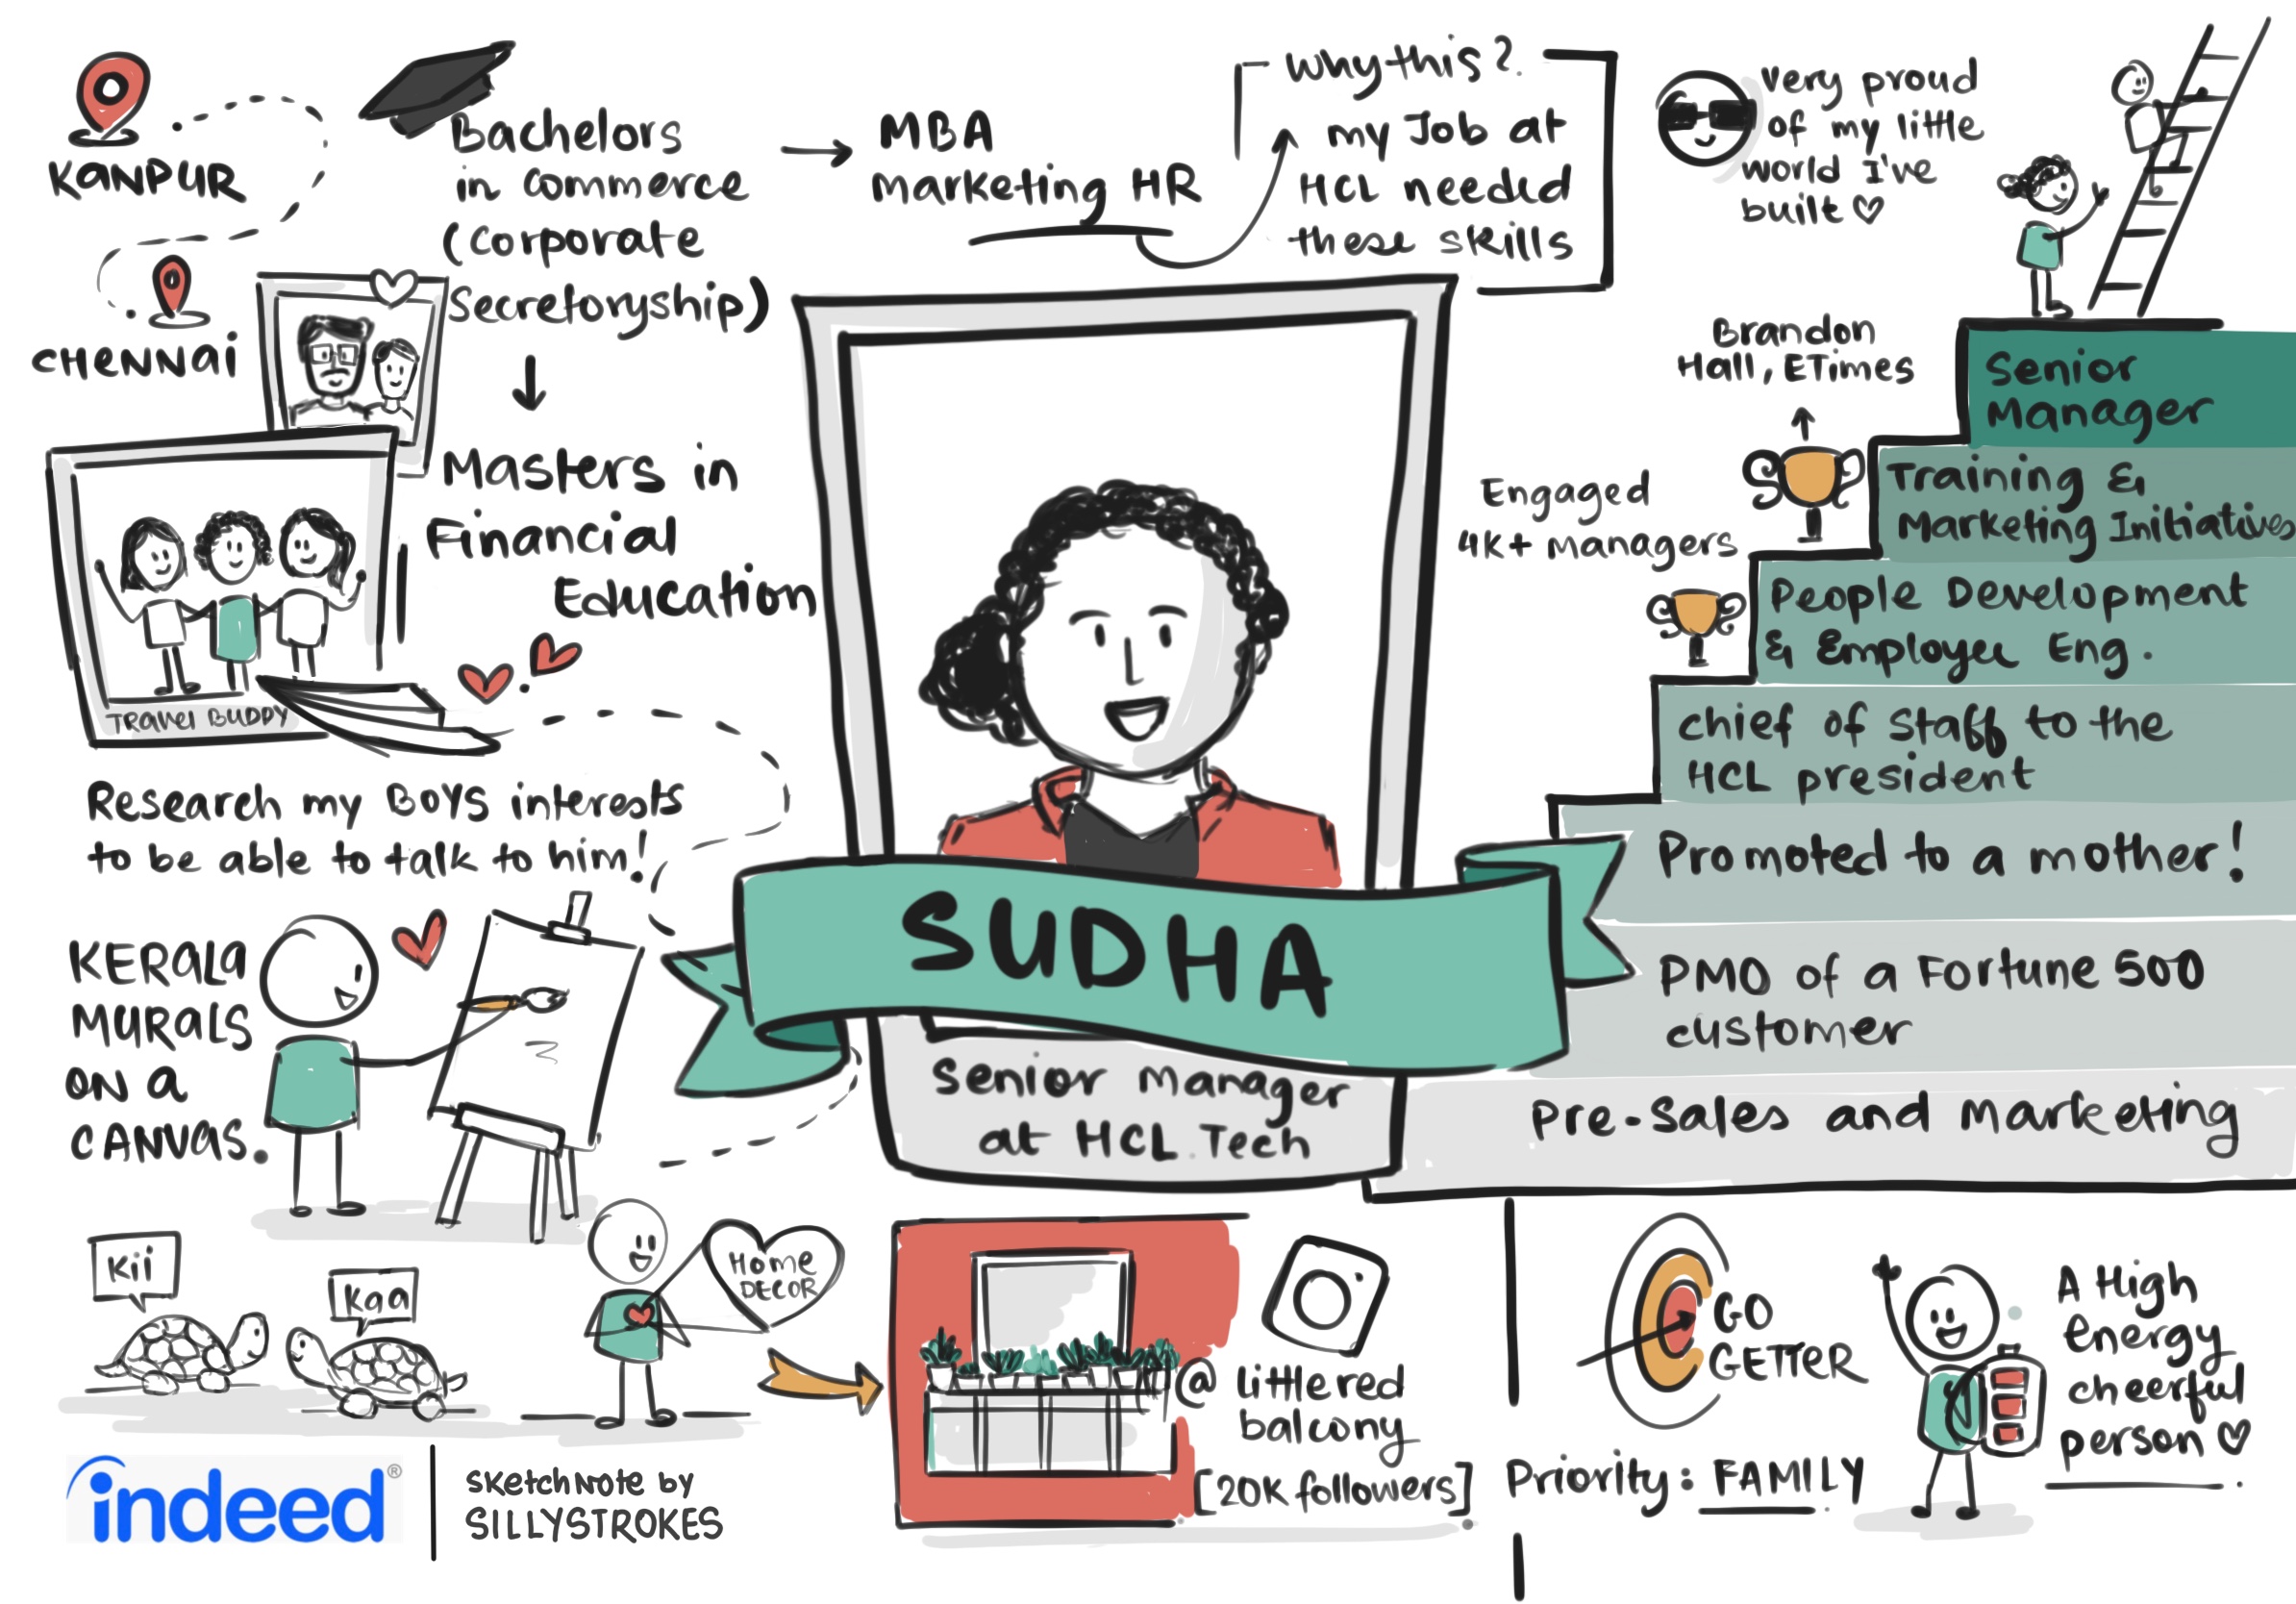 KANPUR
CHENNAI
Bachelors
in commerce
(corporate
Secretoryship)
MBA
Marketing HR
Why this?
my Job at
HCL needed
these skills
Masters in
Financial
Education
TRAVEL BUDDY
Research my BOYS interests
to be able to talk to him!
KERALA
MURALS
ON a
CANVAS.
Kii
Kaa
HOME
DECOR
SUDHA
Senior Manager
at HCL Tech
very proud
of my little
world I've
built
Brandon
Hall, ETimes
Engaged
4K+ Managers
Senior
Manager
Training &
Marketing Initiatives
People Development
& Employee Eng.
chief of staff to the
HCL president
Promoted to a mother!
PMO of a Fortune 500
customer
Pre-Sales and Marketing
@ littlered
balcony
[20K followers]
GO
GETTER
Priority: FAMILY
A High
energy
cheerful
person
indeed®
SKetchNote by
SILLYSTROKES